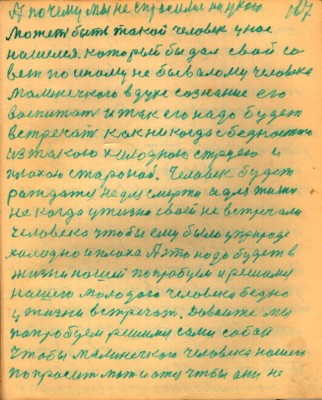 А почему мы не спросили ни у кого 167
Может быть такой человек у нас
нашелся. который бы дал свой со
вет по иному не бывалому человека
маминечкого в духе сознание его
воспитат и так его надо будет
встречат как никогда с бедностию
из такого холодного
плохою стороной. Человек будет
раждатся не для смерти а для жизни
не когда у жизни своей не встречали
человека чтобы ему было у природе
холодно и плоха А это надо будет в
жизни нашей попробуем и решими
нашего молодого человека бедно
у жизни встречат. Давайте мы
попробуем решими сами собой
Чтобы маминечкого человека нашего
попросит мат и отц чтбы они не